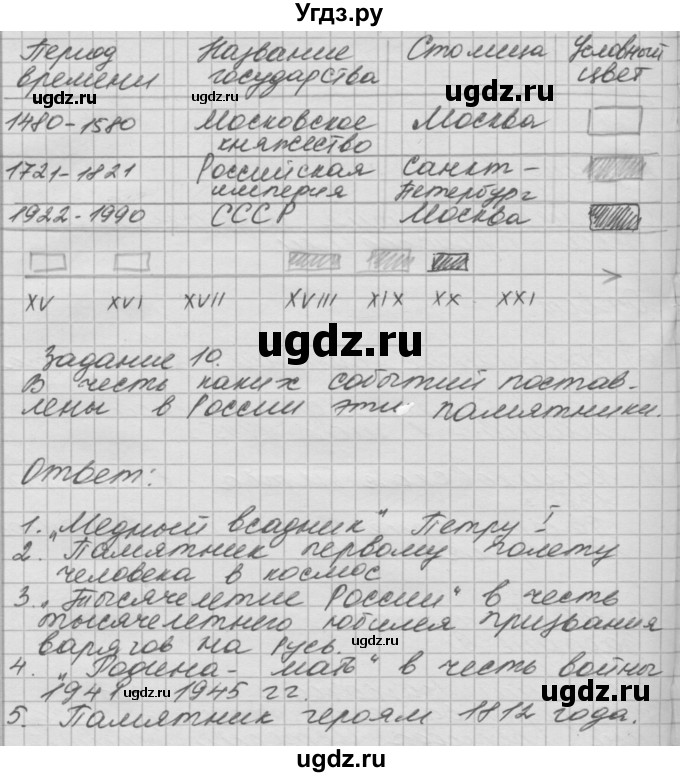 Угдз.ру
Период Название Столица Условный
времени государства цвет
1480-1580 Московское Москва
княжество
1721-1821 Российская Санкт-
империя Петербург
1922-1990 СССР Москва
XV XVI XVII XVIII XIX XX XXI
Задание 10.
В честь каких событий постав-
лены в России эти памятники.
Ответ:
1. „Медный всадник“ Петру I
2. Памятник первому полету
человека в космос
3. „Тысячелетие России“ в честь
тысячелетнего юбилея призвания
варягов на Русь.
4. „Родина-мать“ в честь войны
1941-1945 гг.
5. Памятник героям 1812 года.
ugdz.ru